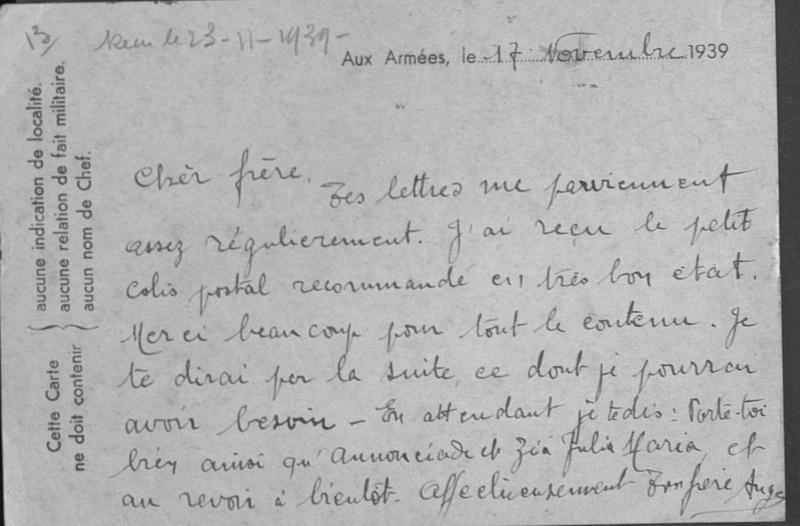 13/ Reçu le 23-11-1939-
Aux Armées, le 17 Novembre 1939
Cette Carte ne doit contenir
aucune indication de localité.
aucune relation de fait militaire.
aucun nom de Chef.
Chèr frère. Tes lettres me parviennent
assez régulierement. J'ai reçu le petit
colis postal recommandé en très bon état.
Merci beaucoup pour tout le contenu. Je
te dirai par la suite ce dont je pourrai
avoir besoin - En attendant je te dis : Porte-toi
bien ainsi qu'Annonciade et Zia Julia Maria, et
au revoir à bientôt - Affectueusement Ton frère Ange